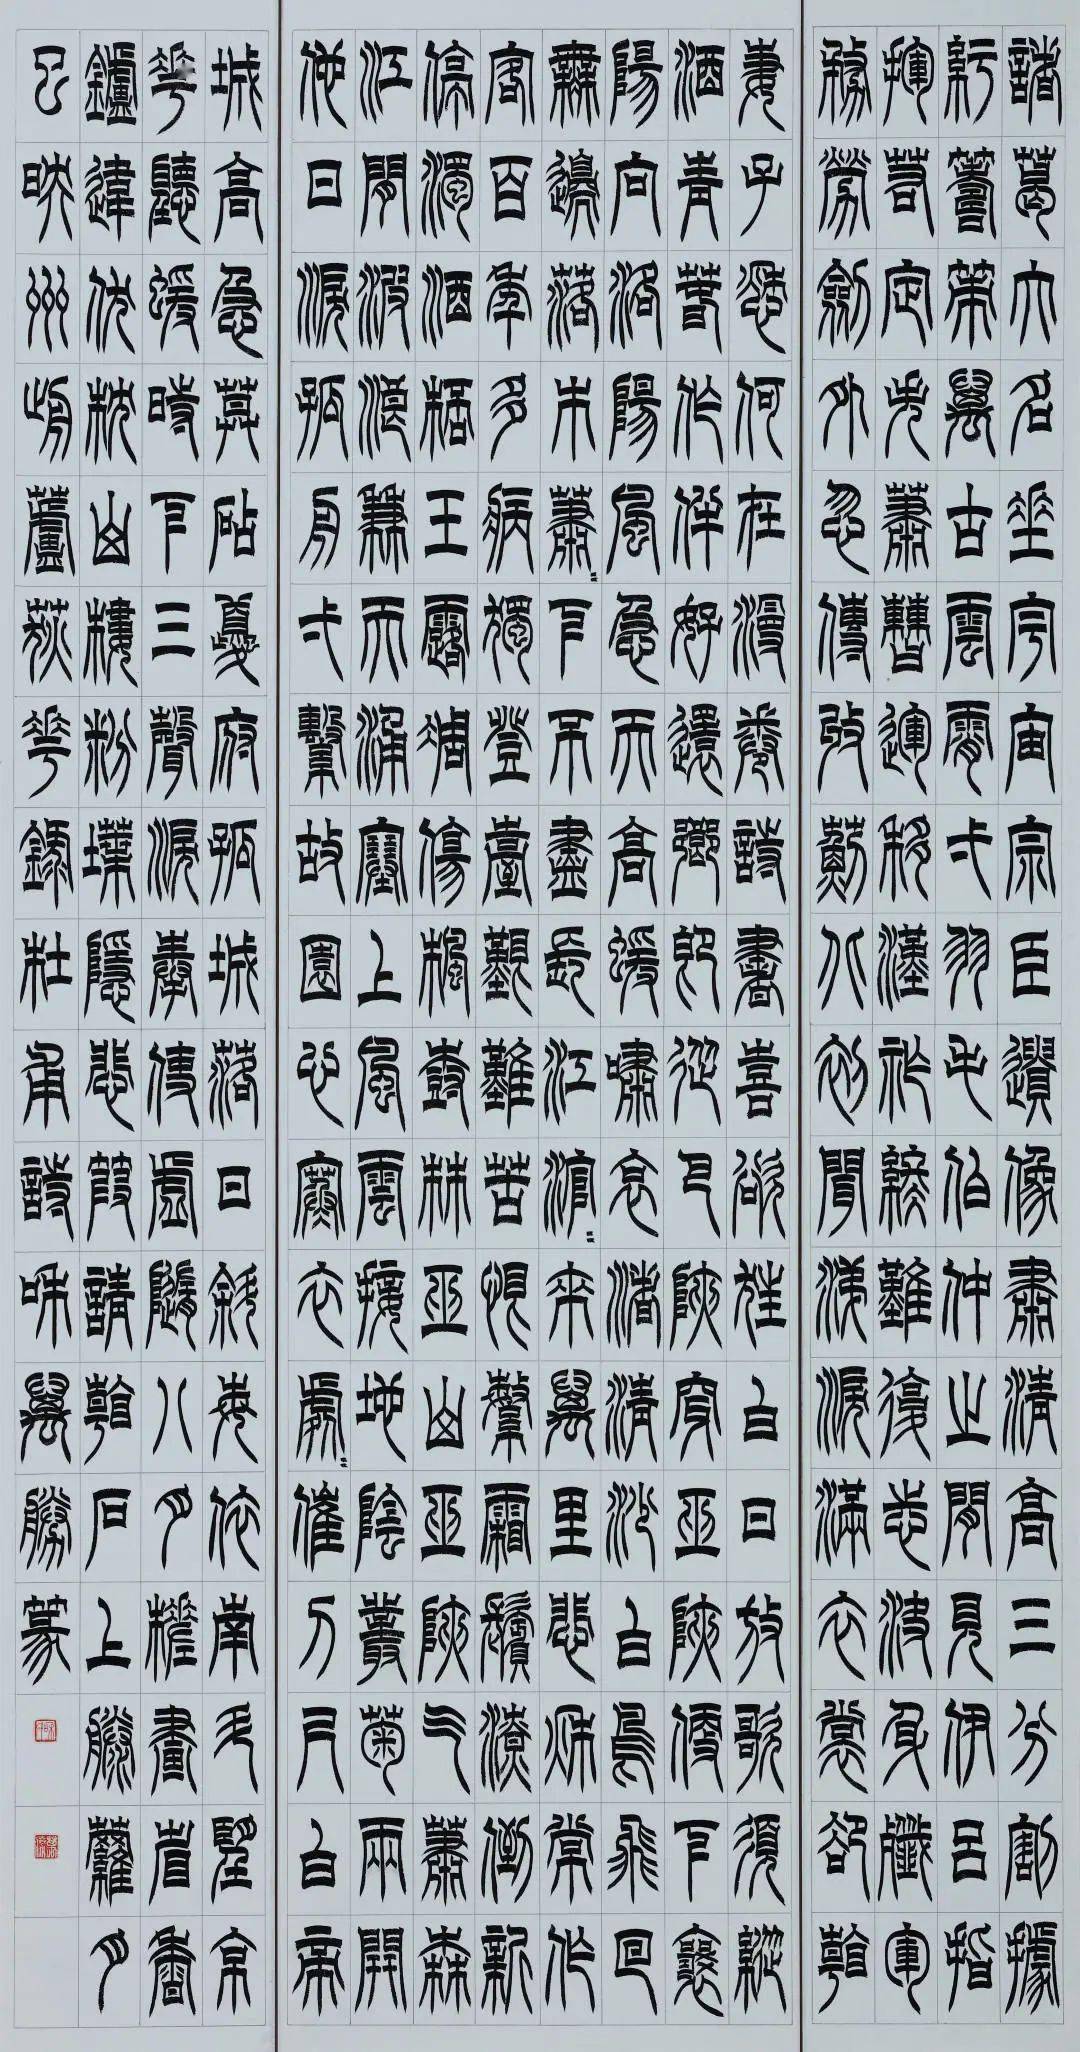 諸葛大名垂宇宙宗臣遺像肅清高三分割據
紆籌策萬古雲霄弌羽毛伯仲之間見伊呂指
揮若定失蕭曹運移漢祚終難復志決身殲軍
務勞劍外忽傳收薊北初聞涕淚滿衣裳卻看
妻子愁何在漫卷詩書喜欲狂白日放歌須縱
酒青春作伴好還鄉即從巴峽穿巫峽便下襄
陽向洛陽風急天高猨嘯哀渚清沙白鳥飛回
無邊落木蕭〻下不盡長江滾〻來萬里悲秋常作
客百年多病獨登臺艱難苦恨繁霜鬢潦倒新
停濁酒桮玉露凋傷楓樹林巫山巫峽气蕭森
江間波浪兼天涌塞上風雲接地陰叢菊兩開
他日淚孤舟弌繫故園心寒衣處〻催刀尺白帝
城高急莫砧夔府孤城落日斜每依南斗望京
華聽猨時下三聲淚奉使虛隨八月槎畫省香
鑪違伏枕山樓粉堞隱悲葭請看石上藤蘿月
已映州前蘆荻華錄杜甫詩萬勝篆